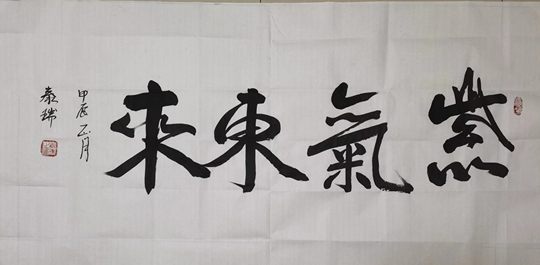 紫氣東來
甲辰正月
泰瑞